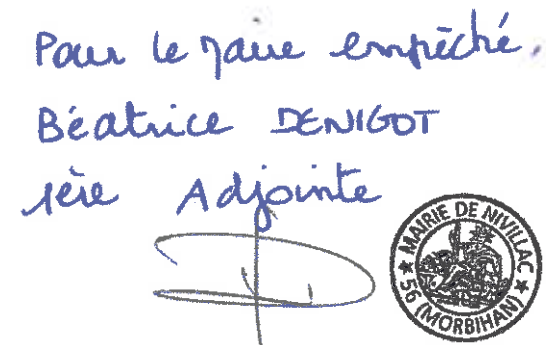 Pour le Maire empêché,
Béatrice DENIGOT
1ère Adjointe
MAIRIE DE NIVILLAC
★ 56 (MORBIHAN) ★